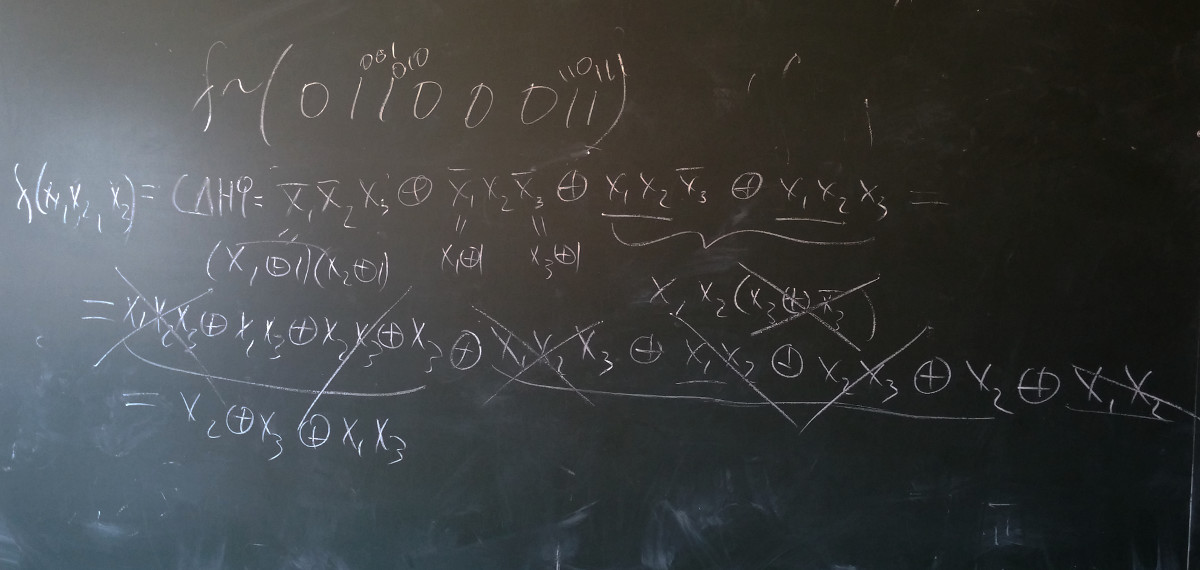 001 010 11011
f ~ (0 1 1 0 0 0 1 1)
f(x₁x₂, x₃) = СДНФ = x̅₁x̅₂x₃ ⊕ x̅₁x₂x̅₃ ⊕ x₁x₂x̅₃ ⊕ x₁x₂x₃ =
(x₁⊕1)(x₂⊕1) x₁⊕1 x₃⊕1
x₁x₂(x₃⊕x̅₃)
= x₁x₂x₃ ⊕ x₁x₃ ⊕ x₂x₃ ⊕ x₃ ⊕ x₁x₂x₃ ⊕ x₁x₂ ⊕ x₂x₃ ⊕ x₂ ⊕ x₁x₂
= x₂ ⊕ x₃ ⊕ x₁x₃